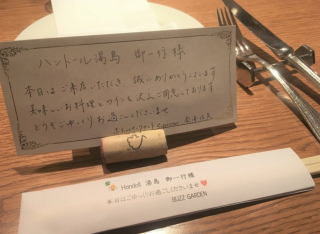 ハンドール湯島 御一行様
本日はご来店いただき、誠にありがとうございます
美味しいお料理とワインを沢山ご用意しております
どうぞごゆっくりお過ごしくださいませ
Handoll 湯島 御一行様
本日はごゆっくりお過ごしくださいませ
BUZZ GARDEN